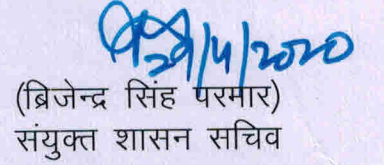 29/4/2020
(ब्रिजेन्द्र सिंह परमार)
संयुक्त शासन सचिव